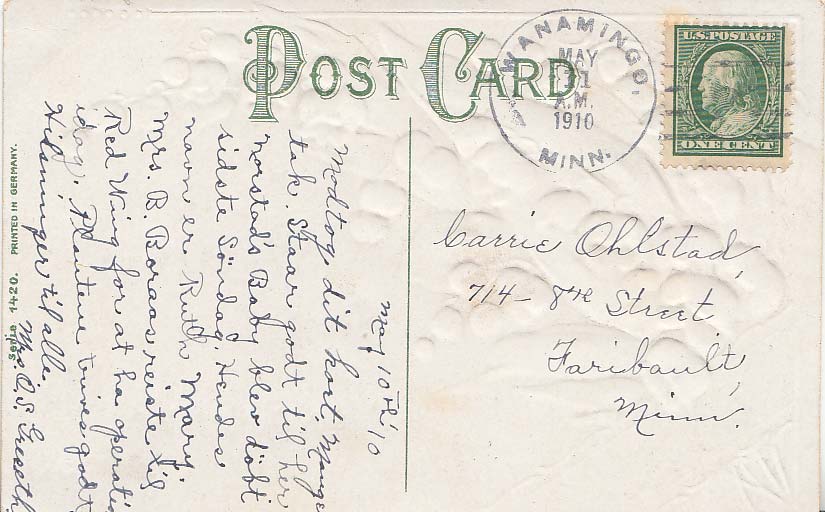 POST CARD
WANAMINGO,
MAY
11
A.M.
1910
MINN.
U.S. POSTAGE
ONE CENT
Carrie Ohlstad,
714 - 8th Street
Faribault,
Minn.
May 10th '10
Modtog dit kort. Mange
tak. Staar godt til her
Norstad's Baby blev döbt
sidste Söndag, Hendes
navn er Ruth Mary.
Mrs. B. Boraas reiste til
Red Wing for at ha operati
idag. Plantene trives godt
Hilsninger til alle.
Mrs. O. S.
Serie 1420. PRINTED IN GERMANY.